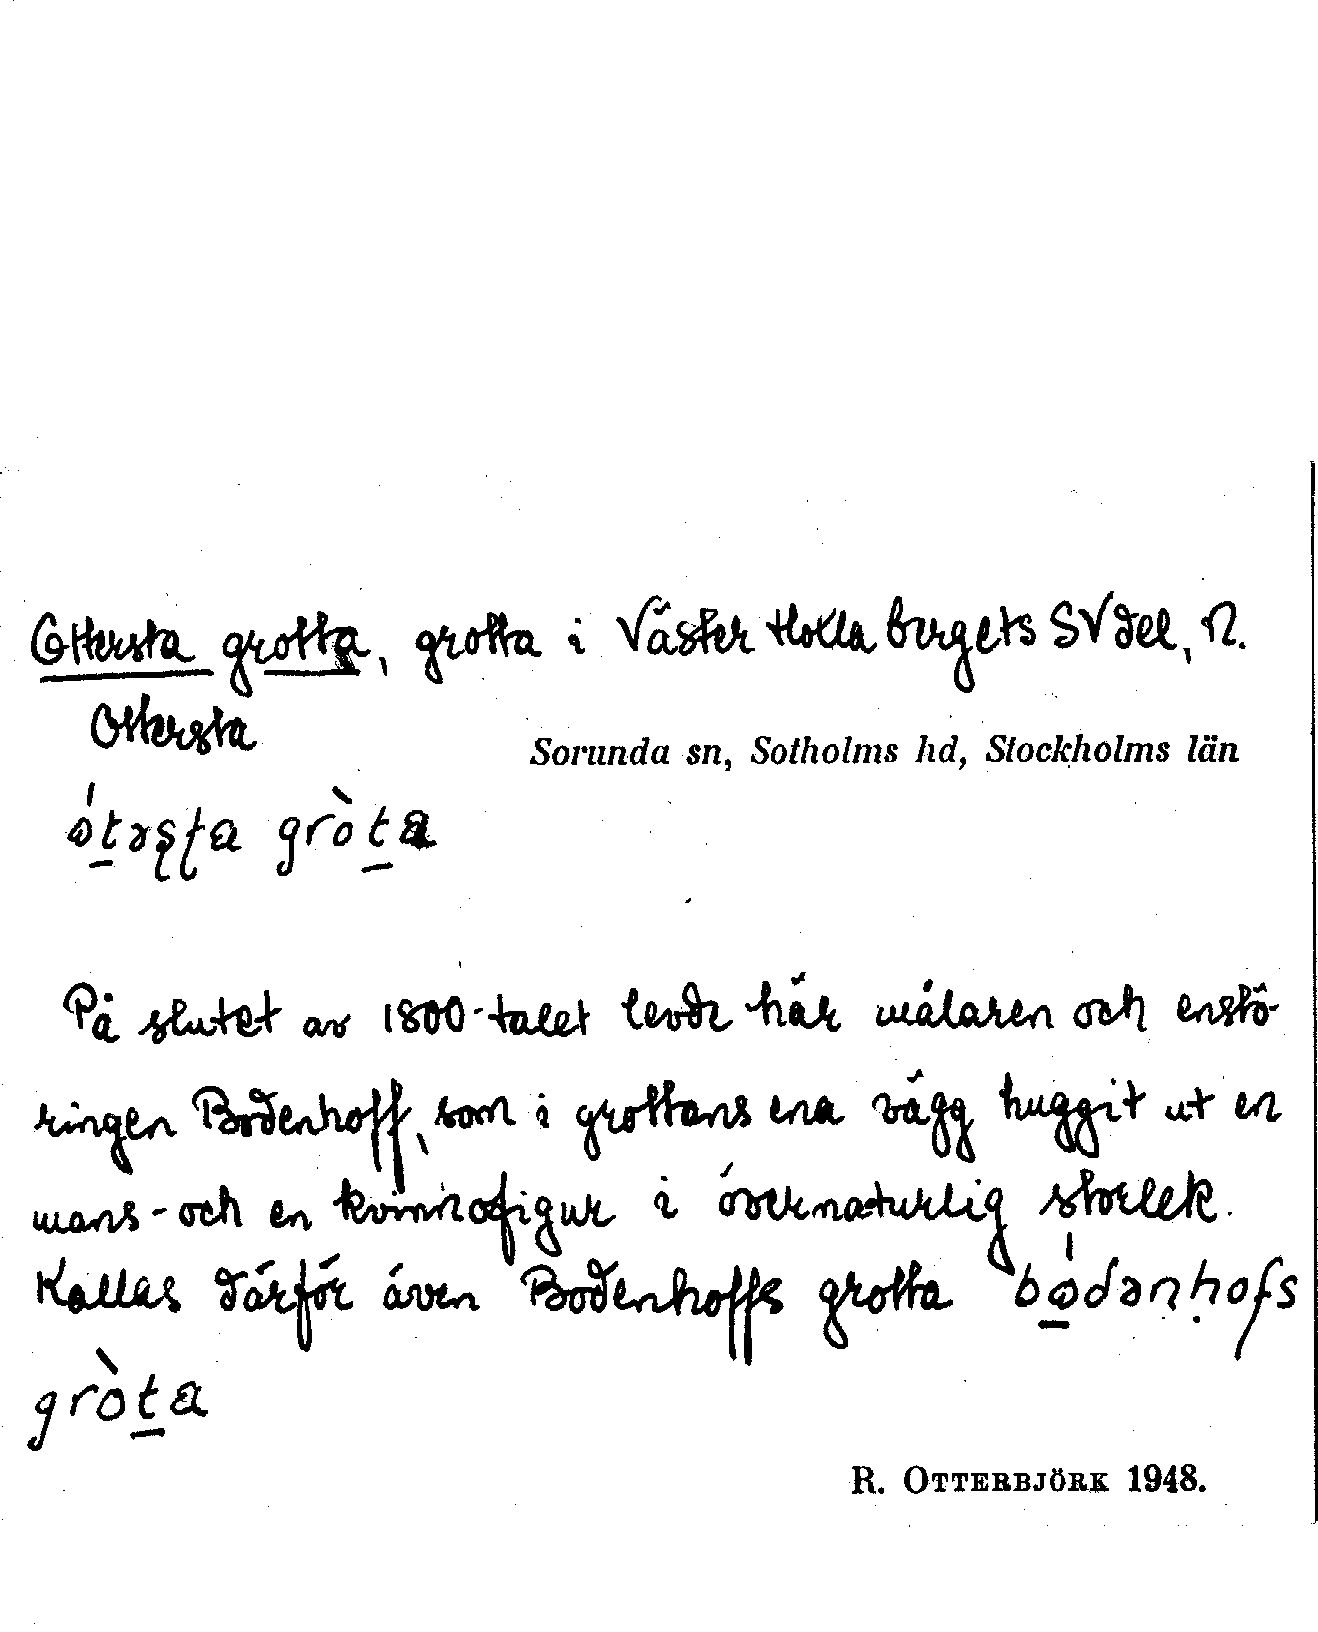 Ottersta grotta, grotta i Väster Holla bergets SV del, N.
Ottersta
Sorunda sn, Sotholms hd, Stockholms län
ó̱tərsta grò̱ta
På slutet av 1800-talet levde här målaren och enstö-
ringen Bodenhoff, som i grottans ena vägg huggit ut en
mans- och en kvinnofigur i övernaturlig storlek.
Kallas därför även Bodenhoffs grotta bódənhofs
gròta
R. OTTERBJÖRK 1948.